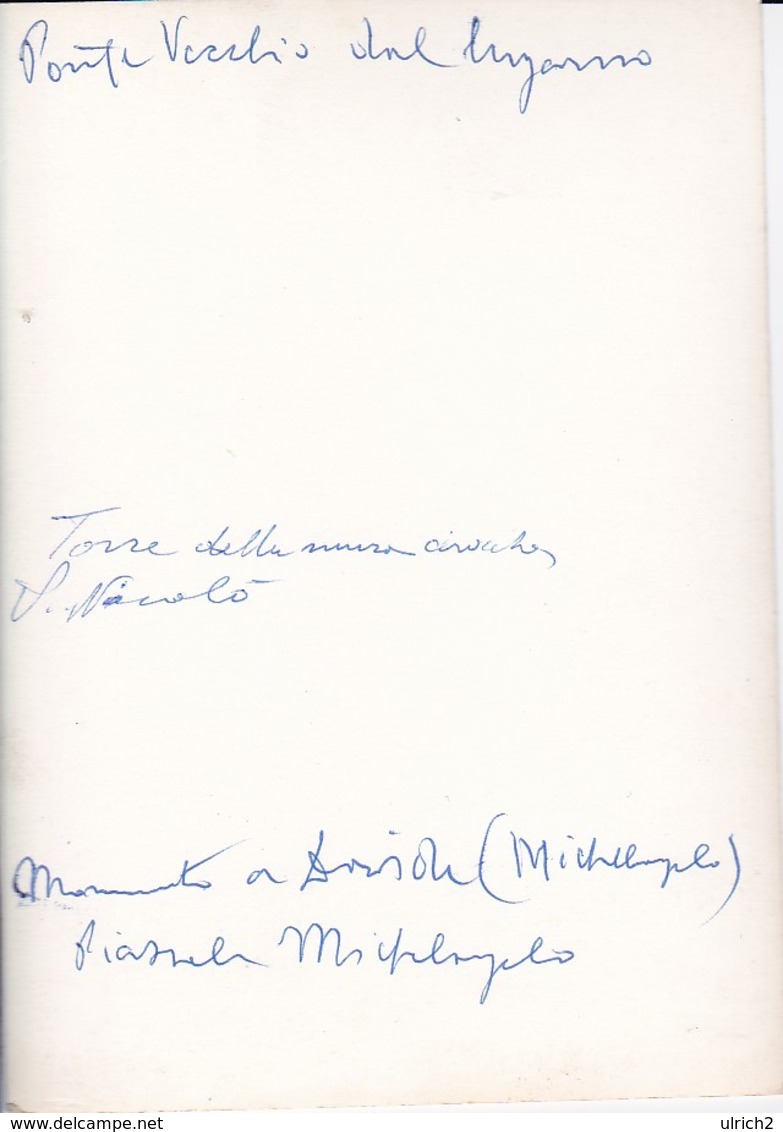 Ponte Vecchio dal lungarno
Torre delle mura
S. Niccolò
Monumento a Davide (Michelangelo)
Piazzale Michelangelo
delcampe.net
ulrich2